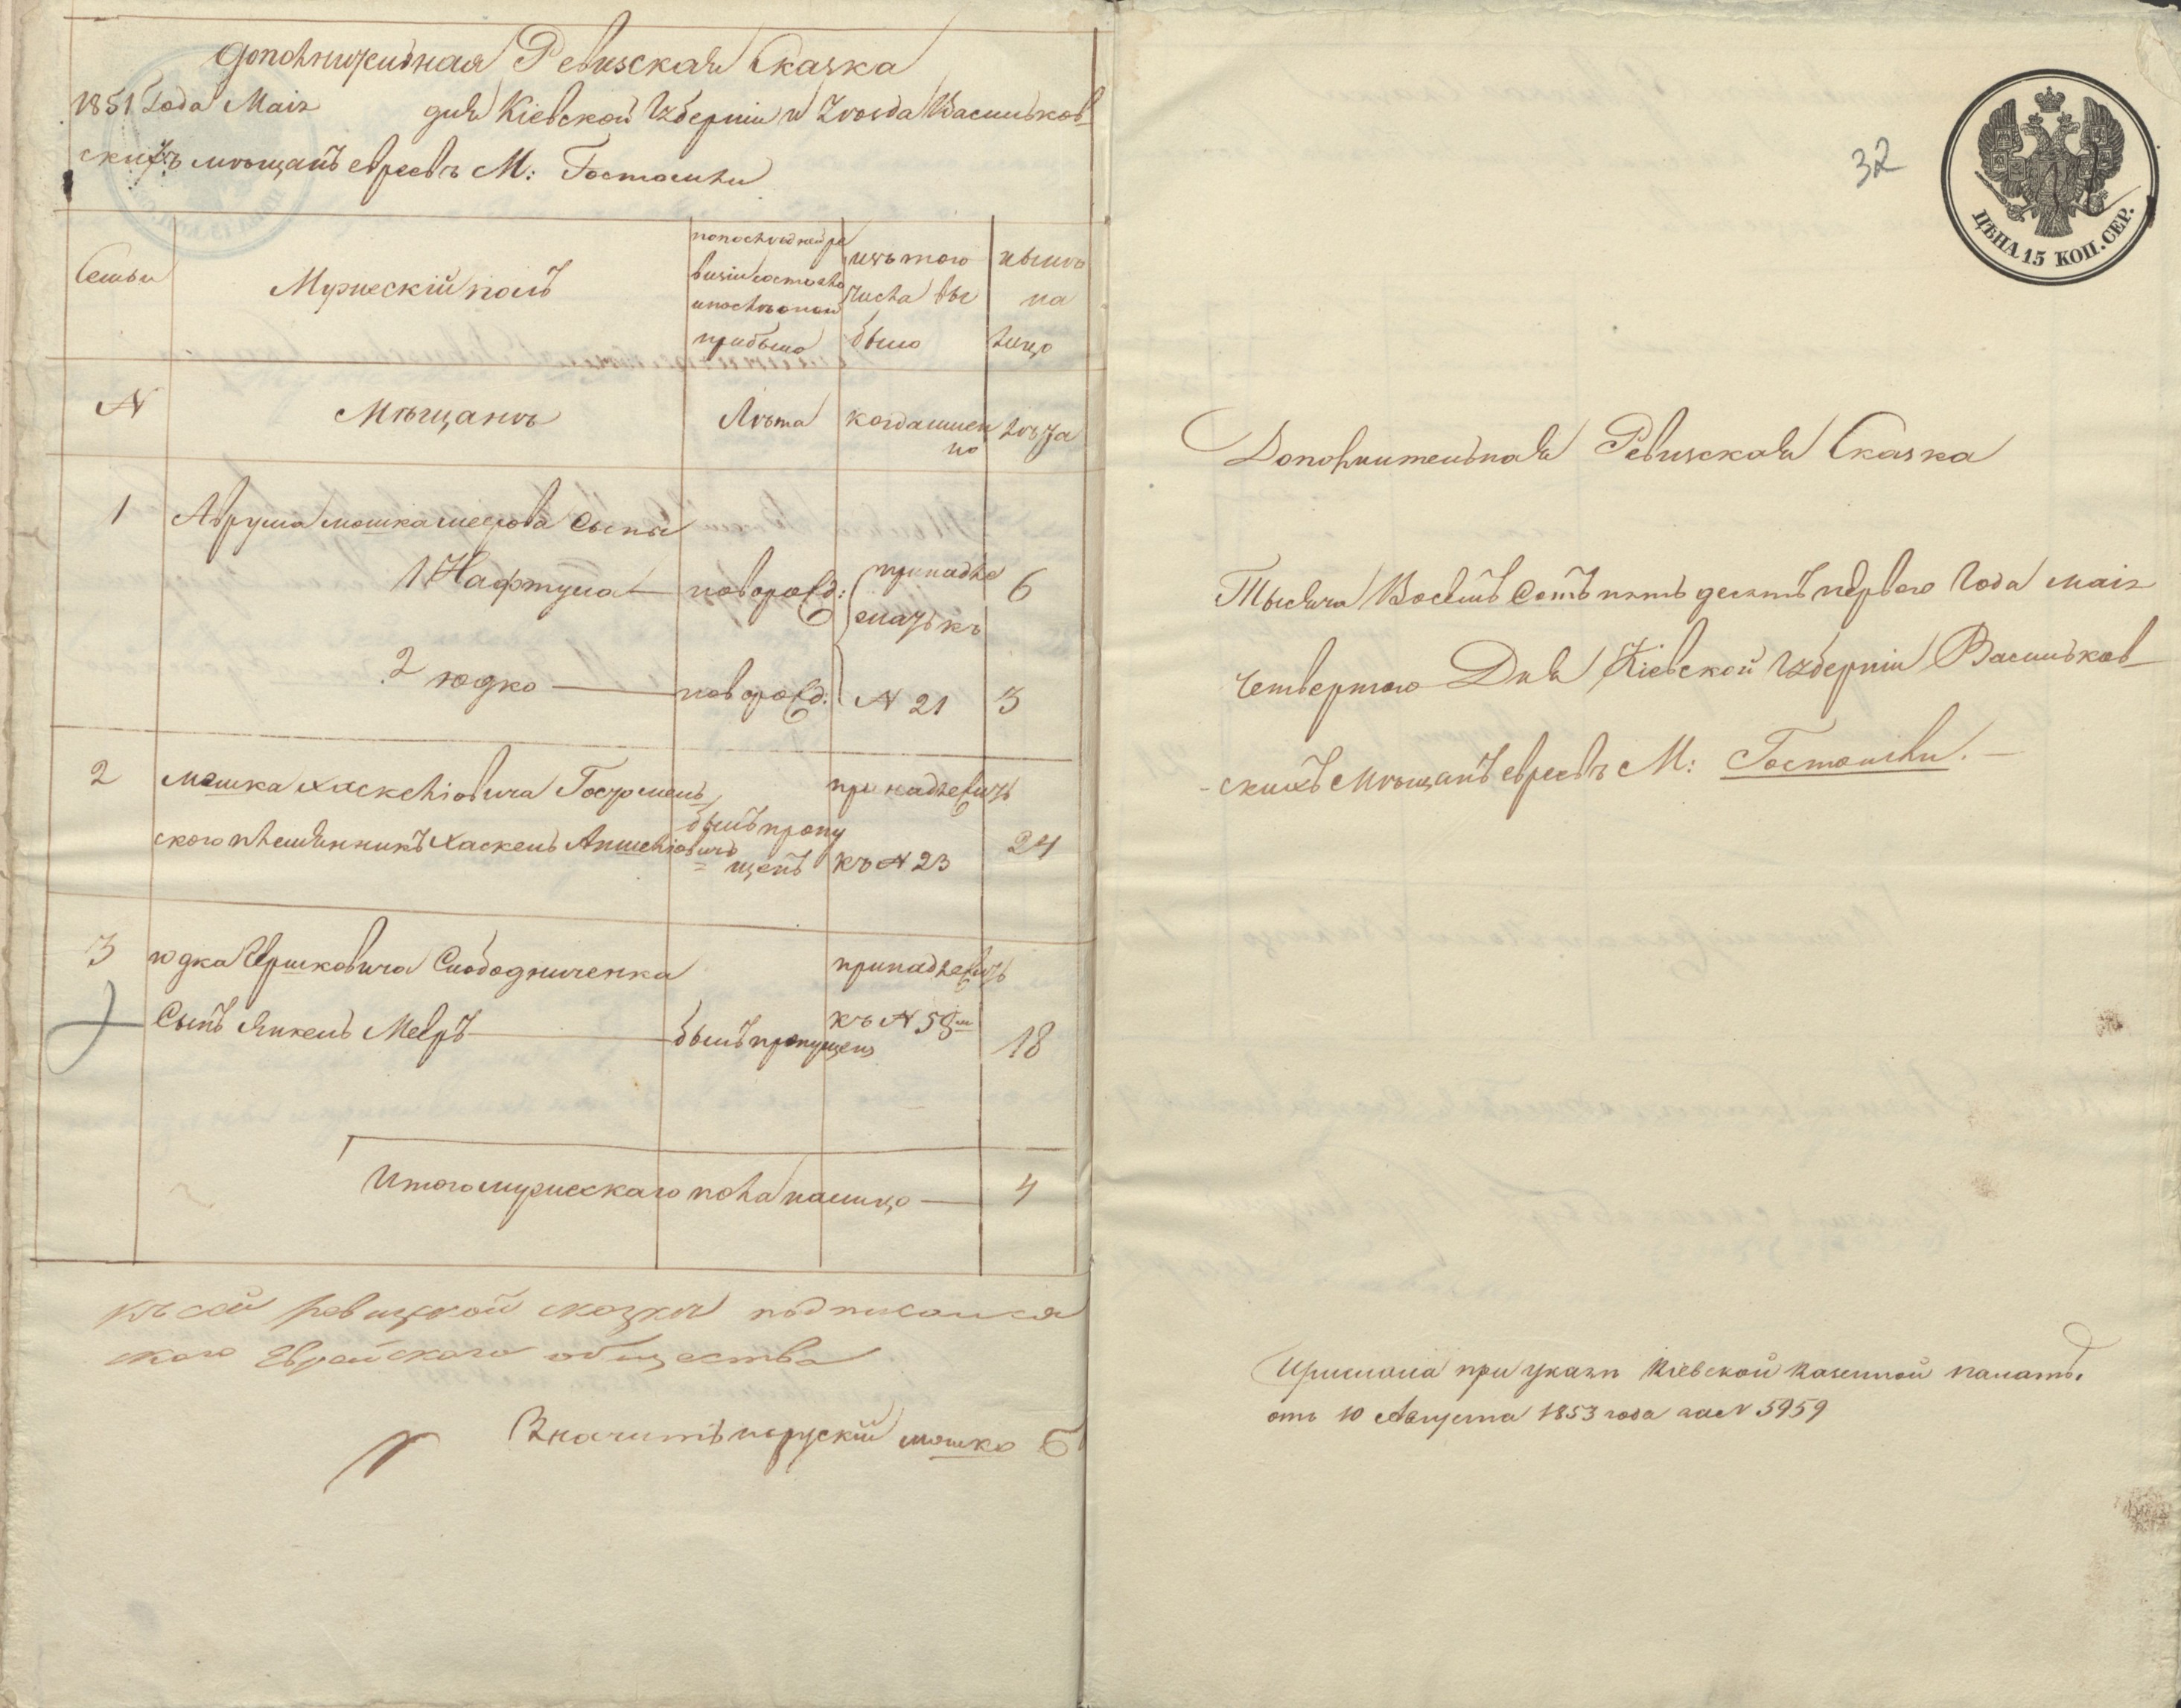 Дополнительная Ревизская Сказка
1851 Года Маія дня Кіевской Губерніи и Уѣзда Васильков-
скихъ мѣщанъ евреевъ М: Гостомли
Семьи
Мужескій полъ
по последней ре
визіи состояло
и после оной
прибыло
изъ того
числа вы
было
ныне
на
лицо
N
Мѣщанъ
Лѣта
когда именно
лѣта
1 Аврума мошка меерова Сына
1 Нафтула — поворожд: принадле 6
жатъ къ
2 юдко — новорожд: N 21 3
2 мошка хаскеліовича Гостомель принадлежитъ
ского племянникъ Хаскель Аншеліовичъ былъ пропу
щенъ къ N 23 24
3 юдка Гершковича Слободниченка принадлежитъ
Сынъ Янкель Мееръ былъ пропущенъ къ N 58 18
Итого мужескаго пола на лицо — 4
къ сей ревизской сказки подписался
кого Еврейского общества
Значитъ порускій мошко Б
32
ЦѢНА 15 КОП. СЕР.
Дополнительная Ревизская Сказка
Тысяча Восемъ Сотъ пятьдесятъ первого Года маія
четвертого Дня Кіевской Губерніи Васильков-
-скихъ мѣщанъ евреевъ М: Гостомли. —
Прислана при указѣ Кіевской Казенной палаты
отъ 10 Августа 1853 года за N 5959